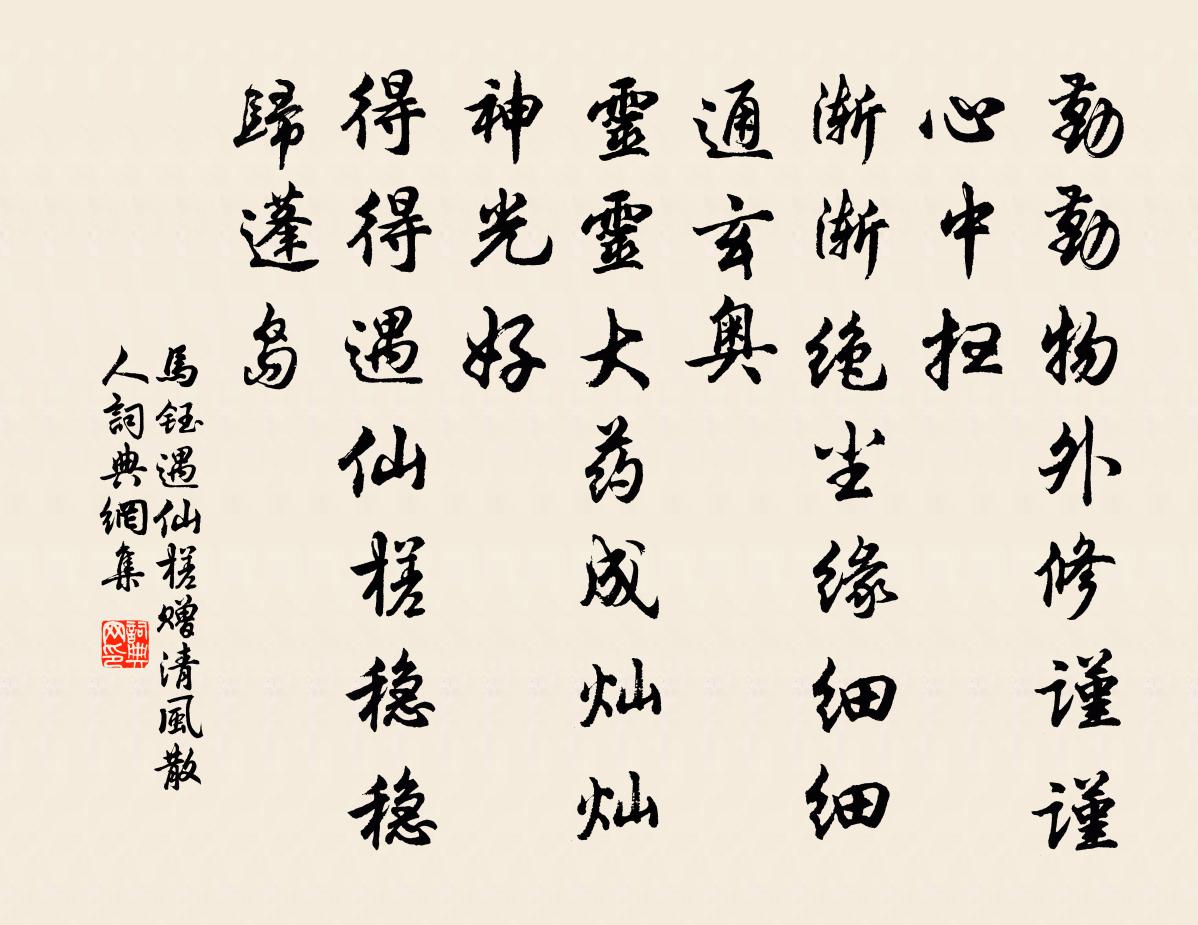 勤勤物外修谨谨
心中扭
渐渐绝尘缘细细
通玄奥
靈靈大药成灿灿
神光好
得得遇仙槎稳稳
歸蓬岛
馬鈺遇仙槎赠清風散
人詞典網集
詞典
网印